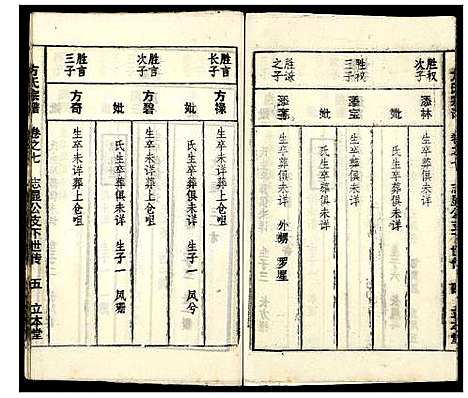 胜权
次子
添林
生卒未详
胜权
三子
添宝
生卒葬俱未详
妣
氏生卒葬俱未详
胜谅
之子
生卒葬俱未详
外甥
罗星
胜言
长子
方禄
生卒未详葬上仓咀
妣
氏生卒葬俱未详
生子一
凤兮
胜言
次子
方碧
生卒未详葬上仓咀
妣
氏生卒葬俱未详
生子一
凤珊
胜言
三子
方奇
生卒未详葬上仓咀
方氏宗谱
卷之七
志显公支下世传
五
立本堂